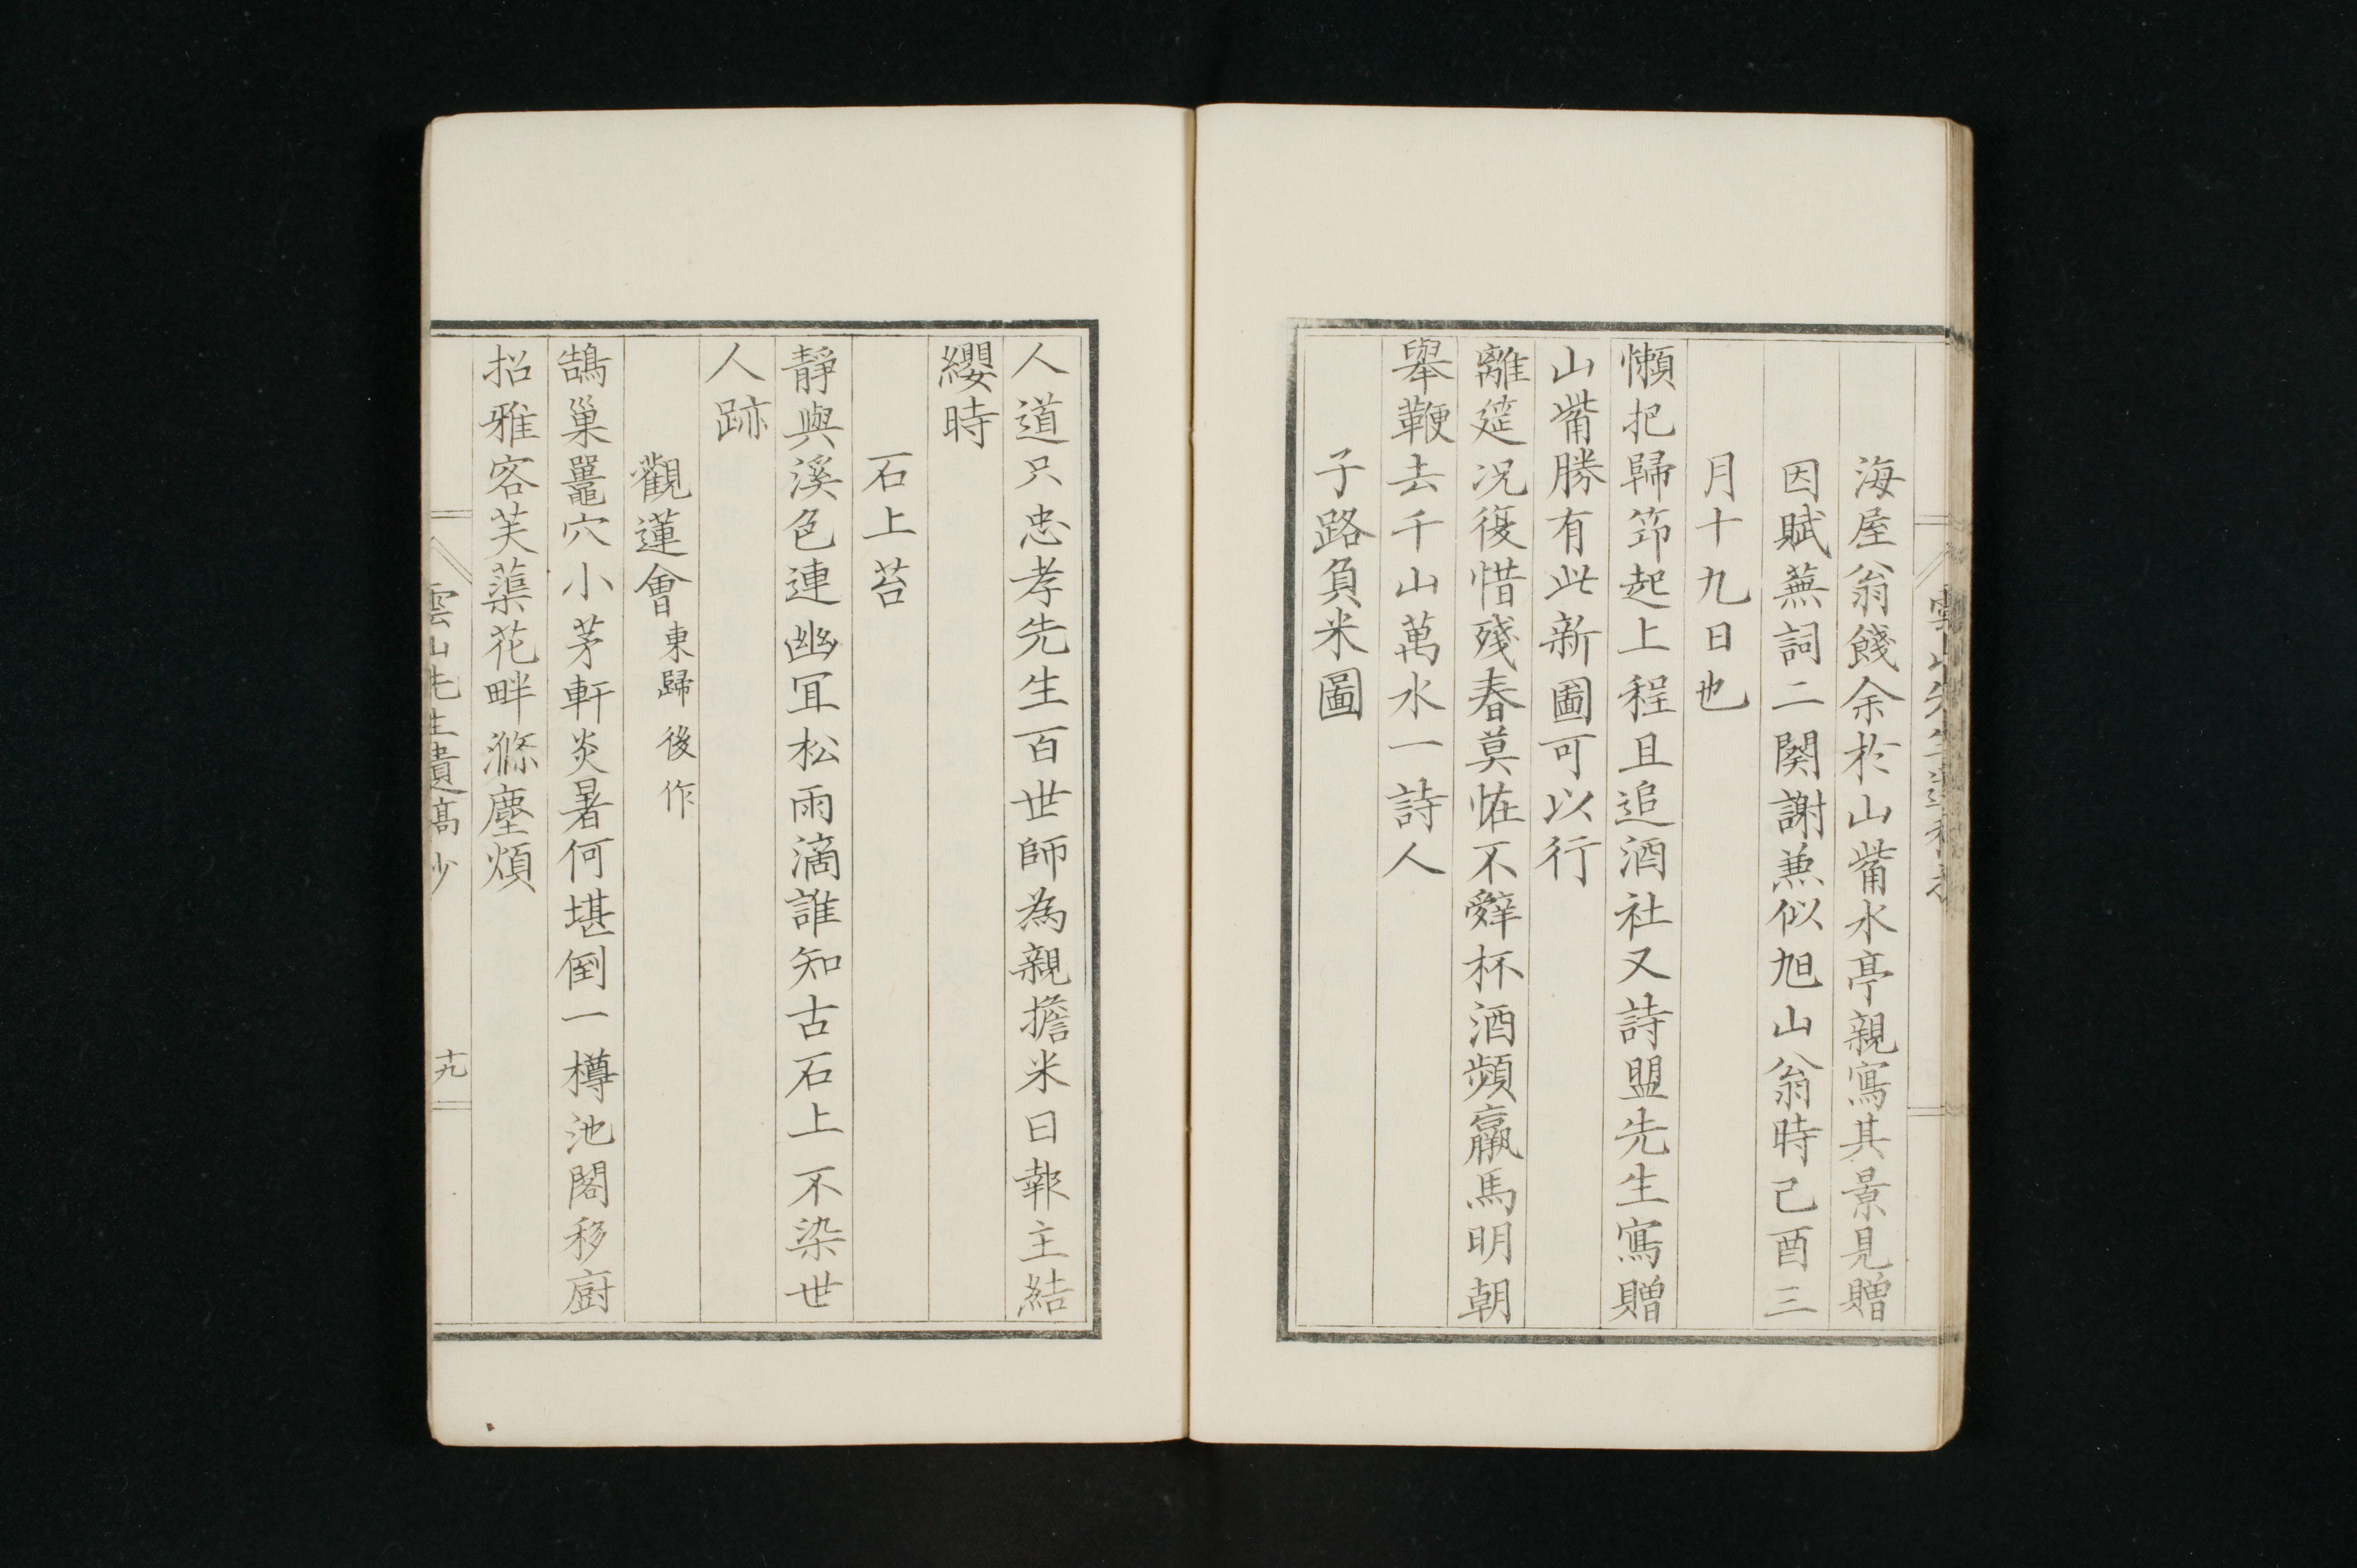 海屋翁餞余於山觜水亭親寫其景見贈
因賦蕪詞二闋謝兼似旭山翁時己酉三
月十九日也
懶把歸笻起上程且追酒社又詩盟先生寫贈
山觜勝有此新圖可以行
離筵况復惜殘春莫怪不辭杯酒頻羸馬明朝
舉鞭去千山萬水一詩人
子路負米圖
人道只忠孝先生百世師為親擔米日報主結
纓時
石上苔
靜與溪色連幽冝松雨滴誰知古石上不染世
人跡
觀蓮會東歸後作
鵠巢鼉穴小茅軒炎暑何堪倒一樽池閣移廚
招雅客芙蕖花畔滌塵煩
雲山先生遺髙抄
十九